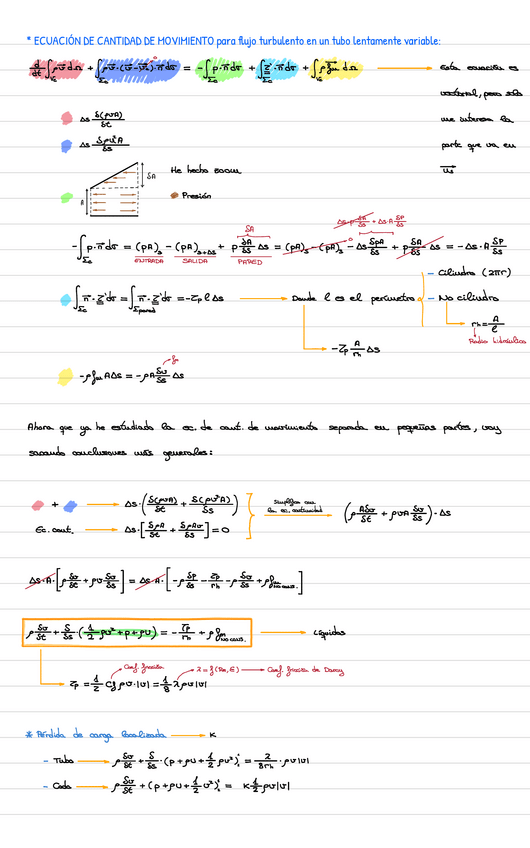 * ECUACIÓN DE CANTIDAD DE MOVIMIENTO para flujo turbulento en un tubo lentamente variable:
d/dt ∫ρv̄dΩ + ∫ρv̄·(v̄-v̄c)·n̄dσ = -∫p·n̄dσ + ∫τ̄'·n̄dσ + ∫ρf̄m dΩ → Esta ecuación es
vectorial, pero solo
me interesa la
Δs δ(ρvA)/δt
parte que va en
Δs δρv²A/δs
He hecho zoom
δA
A
Presión
-∫p·n̄dσ = (pA)s - (pA)s+Δs + p δA/δs Δs = (pA)s - (pA)s - Δs δpA/δs + p δA/δs Δs = -Δs·A δp/δs
ENTRADA SALIDA PARED
∫n̄·τ̄'dσ = ∫n̄·τ̄'dσ = -τp l Δs → Donde l es el perímetro
- Cilindro (2πr)
- No cilindro
rh = A/l
Radio hidráulico
-τp A/rh Δs
Ahora que ya he estudiado la ec. de cant. de movimiento separada en pequeñas partes, voy
sacando conclusiones más generales:
+ → Δs·(δ(ρvA)/δt + δ(ρv²A)/δs)
Simplifico con
la ec. continuidad
(ρ Aδv/δt + ρvA δv/δs)·Δs
Ec. cont. → Δs·[δρA/δt + δρAv/δs] = 0
Δs·A·[ρ δv/δt + ρv δv/δs] = Δs·A·[-δp/δs - τp/rh - ρ δU/δs + ρfm no cons.]
ρ δv/δt + δ/δs·(1/2 ρv² + p + ρU) = -τp/rh + ρ fm no cons. → Líquidos
Coef. fricción
λ = f(Re, ε) → Coef. fricción de Darcy
τp = 1/2 Cf ρv·|v| = 1/8 λρv|v|
* Pérdida de carga localizada → K
- Tubo → ρ δv/δt + δ/δs·(p + ρU + 1/2 ρv²) = λ/8rh · ρv|v|